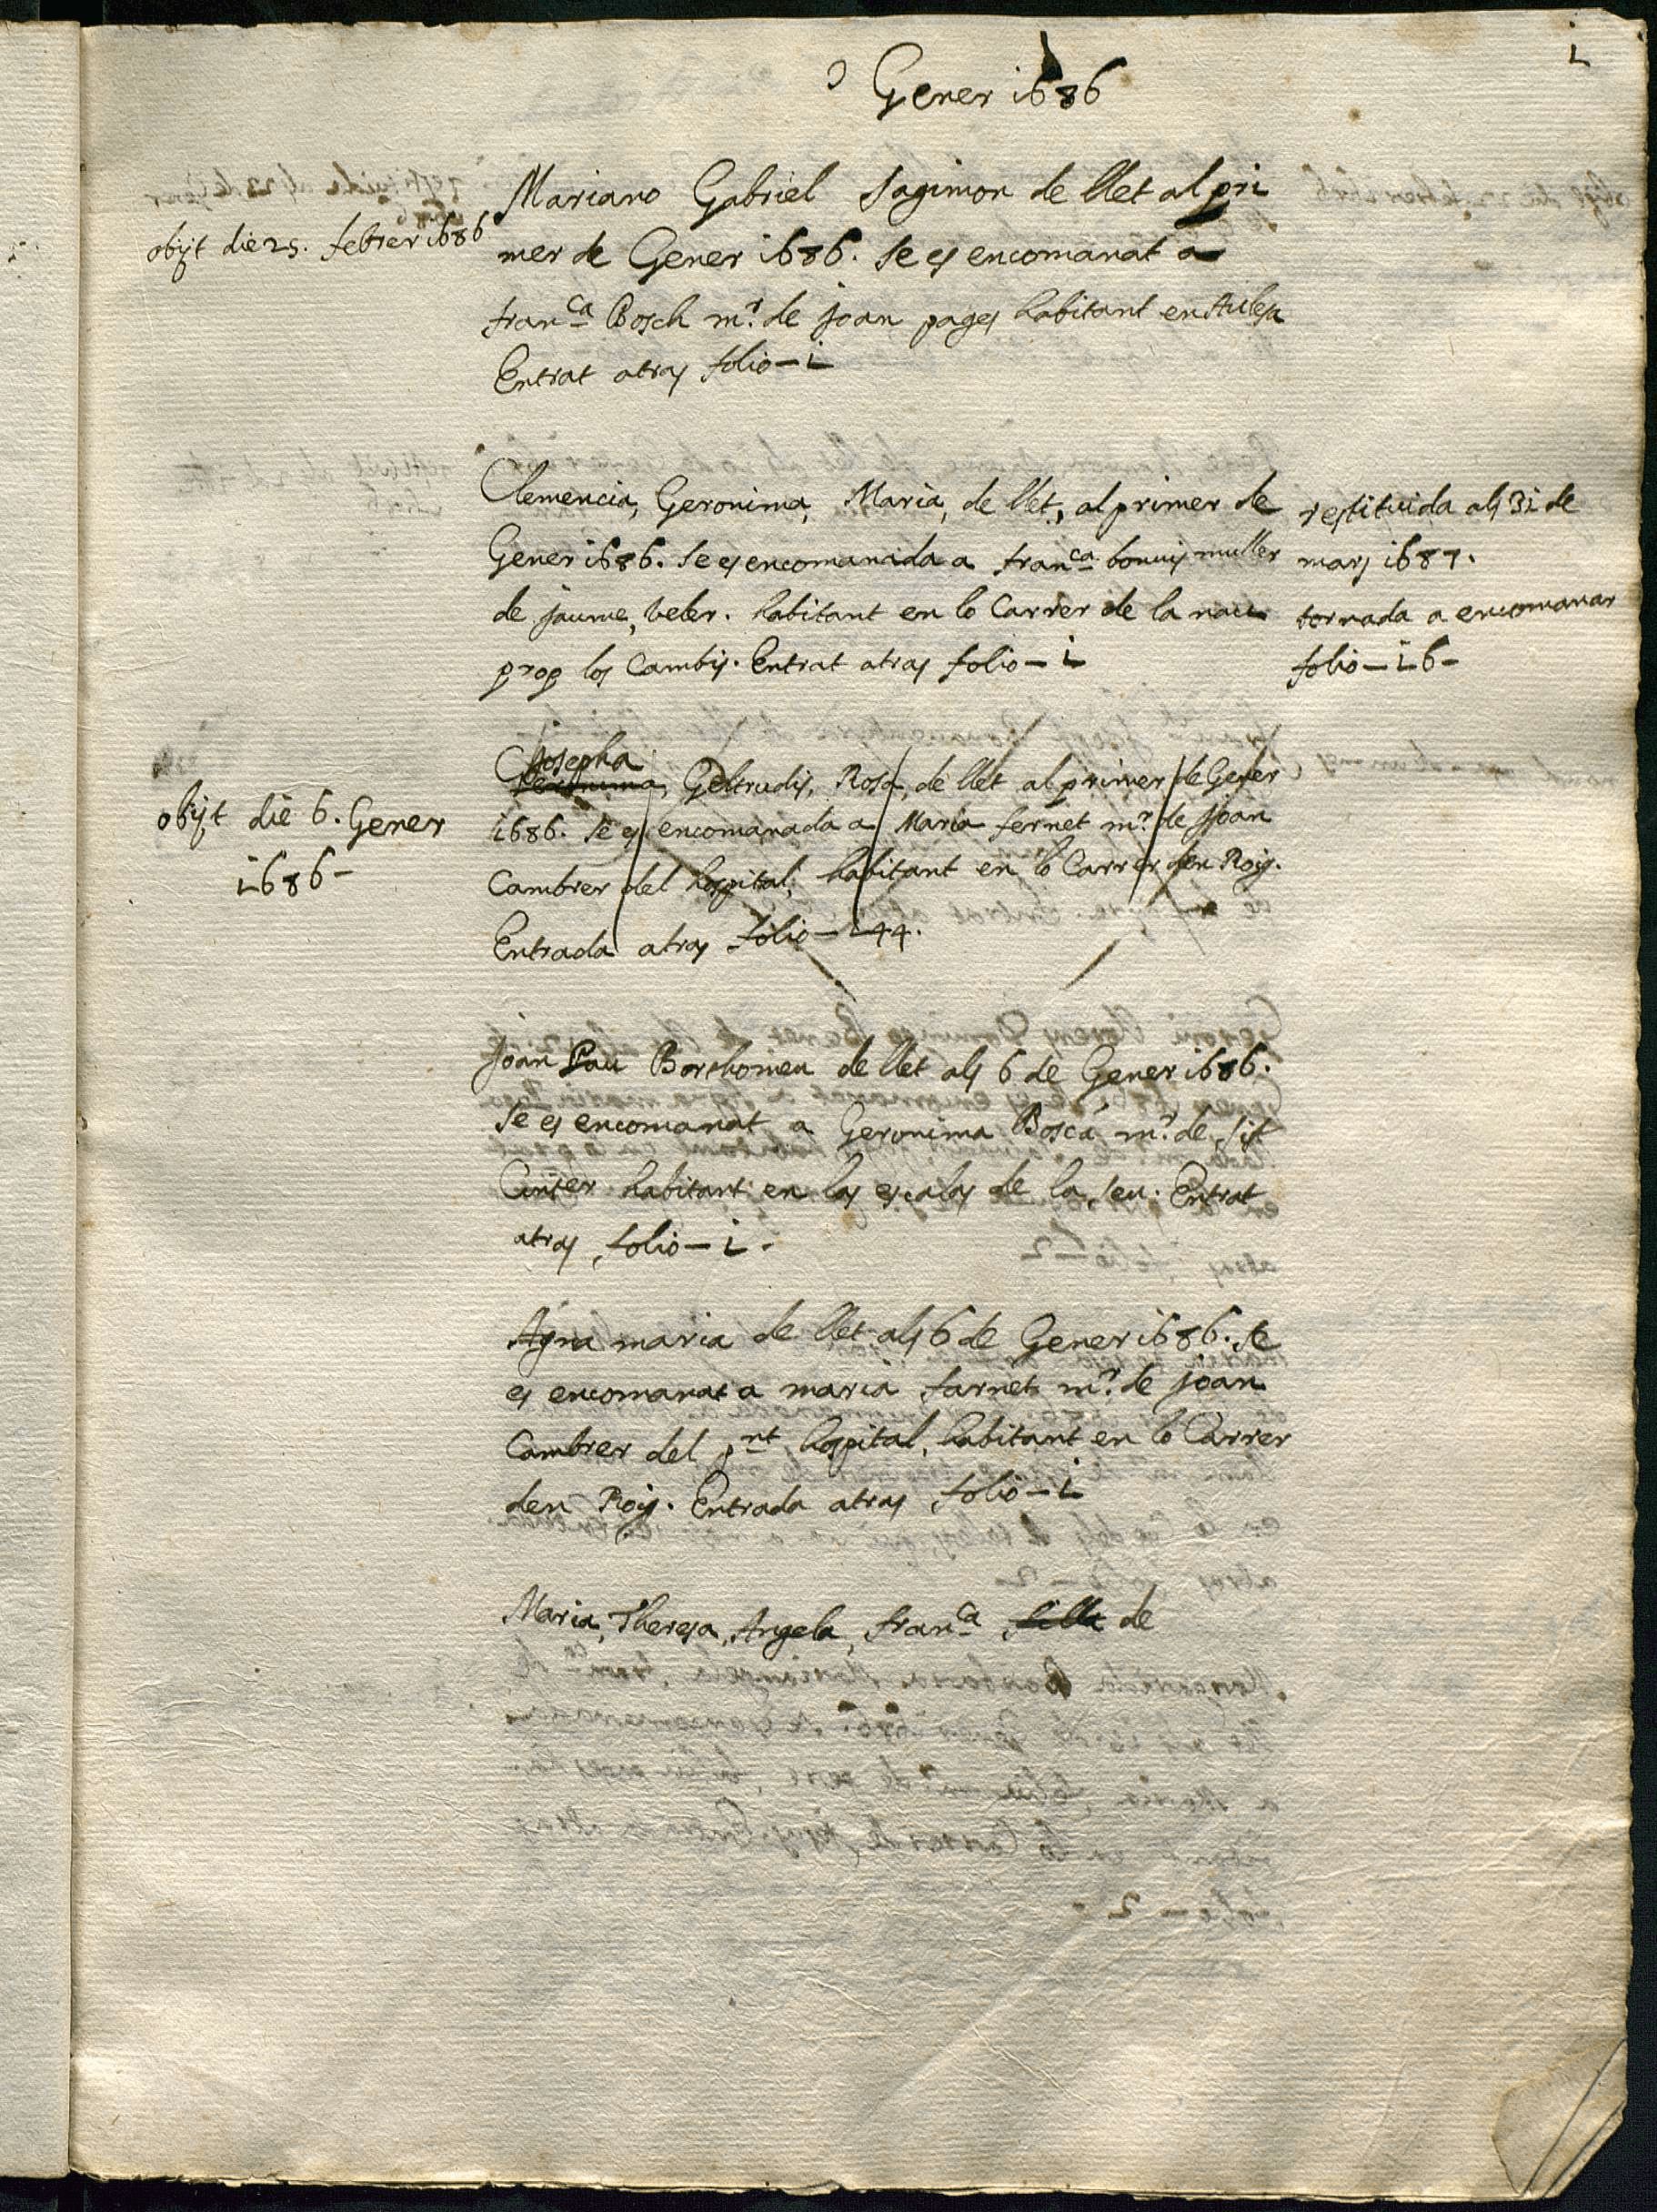 1
Gener 1686
obijt die 25. febrer 1686
Mariano Gabriel Sagimon de llet al pri
mer de Gener 1686. se es encomanat a
franca Bosch mr. de Joan pages habitant en
Entrat atras folio - 1
Clemencia, Geronima, Maria, de llet, al primer de
Gener 1686. se es encomanada a franca muller
de jaume, veler. habitant en lo Carrer de la nau
prop los Cambis. Entrat atras folio - 1
restituida als 31 de
mars 1687.
tornada a encomanar
folio - 16 -
Josepha
Geronima, Geltrudis, Rosa, de llet al primer de Gener
1686. se es encomanada a Maria fernet mr. de Joan
Cambrer del hospital, habitant en lo Carrer den Roig.
Entrada atras folio - 144.
obijt die 6. Gener
1686 -
Joan Pau Borthomeu de llet als 6 de Gener 1686.
se es encomanat a Geronima Bosca mr. de
habitant en las escalas de la seu. Entrat
atras folio - 1.
Agna maria de llet als 6 de Gener 1686. se
es encomanat a maria farnet mr. de Joan
Cambrer del pnt hospital, habitant en lo Carrer
den Roig. Entrada atras folio - 1
Maria, Theresa, Angela, franca filla de